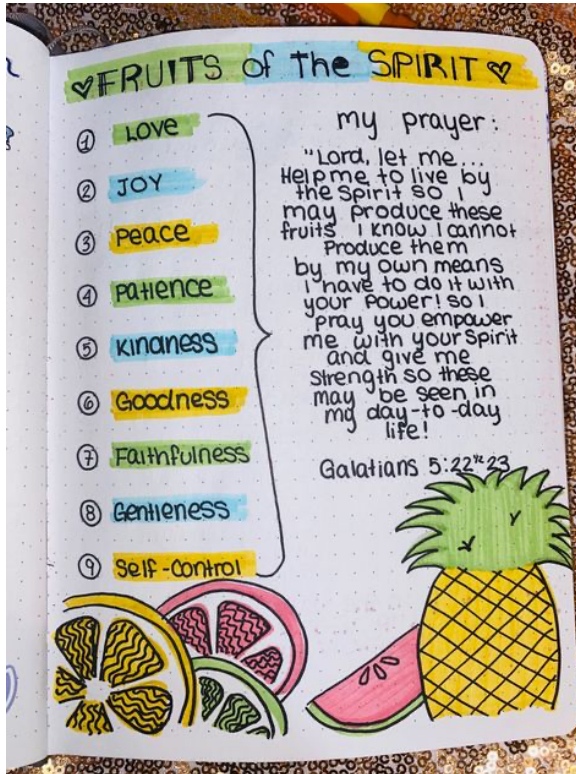 ♡FRUITS of the SPIRIT♡
① LOVE
② JOY
③ Peace
④ Patience
⑤ Kindness
⑥ Goodness
⑦ Faithfulness
⑧ Gentleness
⑨ Self-Control
my prayer:
"Lord, let me...
Help me to live by
the Spirit so I
may produce these
fruits I know I cannot
Produce them
by my own means
I have to do it with
your Power! so I
pray you empower
me with your Spirit
and give me
strength so these
may be seen in
my day-to-day
life!
Galatians 5:22-23